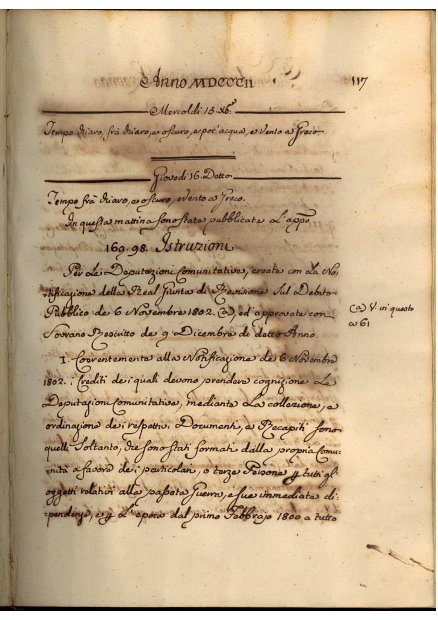 Anno MDCCCII
117
Mercoldi 15. Xb.e
Tempo chiaro, frà chiaro, e oscuro, e poc' acqua, e Vento a Greco.
Giovedi 16. Detto
Tempo frà chiaro, e oscuro, e Vento a Greco.
In questa mattina sono state pubblicate L'appo
169.98. Istruzioni
Per Le Deputazioni Comunitative, create con La No-
tificazione della Real Giunta di Revisione Sul Debito
Pubblico de 6 Novembre 1802. (a) ed approvate con
Sovrano Rescritto de 9 Dicembre di detto Anno.
(a) V. in questo
a 61
1. Coerentemente alla Notificazione de 6 Novembre
1802. i Crediti de i quali devono prendere cognizione Le
Deputazioni Comunitative, mediante La collezione, e
ordinazione dei respettivi Documenti, e Recapiti sono
quelli Soltanto, che sono stati formati dalla propria Comu-
nità a favore dei particolari, o terze Persone p tutti gl'
oggetti relativi alla passata Guerra, e sue immediate di-
:pendenze, e p L' epoca dal primo Febbrajo 1800 a tutto